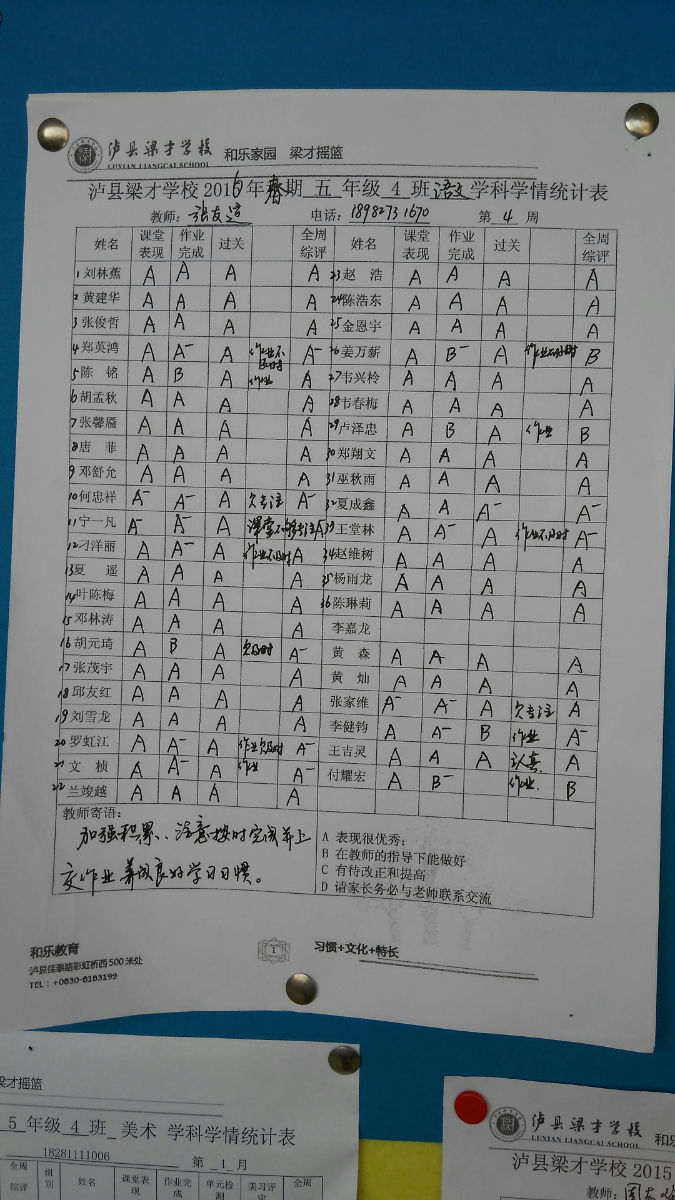 泸县梁才学校 和乐家园 梁才摇篮
LUXIAN LIANGCAI SCHOOL
泸县梁才学校2016年春期 五 年级 4 班 语文 学科学情统计表
教师: 张友 电话: 18982731670 第 4 周
姓名 课堂表现 作业完成 过关 全周综评 姓名 课堂表现 作业完成 过关 全周综评
1 刘林蕉 A A A A 23 赵 浩 A A A A
2 黄建华 A A A A 24 陈浩东 A A A A
3 张俊哲 A A A A 25 金恩宇 A A A A
4 郑英鸿 A A⁻ A 作业不及时 A⁻ 26 姜万薪 A B⁻ A 作业不及时 B
5 陈 铭 A B A 作业 A 27 韦兴柃 A A A A
6 胡孟秋 A A A A 28 韦春梅 A A A A
7 张馨靥 A A A A 29 卢泽忠 A B A 作业 B
8 唐 菲 A A A A 30 郑翔文 A A A A
9 邓舒允 A A A A 31 巫秋雨 A A A A
10 何忠祥 A⁻ A⁻ A 欠专注 A⁻ 32 夏成鑫 A A A⁻ A⁻
11 宁一凡 A⁻ A⁻ A 课堂不够专注 A 33 王堂林 A A⁻ A 作业不及时 A⁻
12 刁洋丽 A A⁻ A 作业不及时 A 34 赵维树 A A A A
13 夏 遥 A A A A 35 杨雨龙 A A A A
14 叶陈梅 A A A A 36 陈琳莉 A A A A
15 邓林涛 A A A A 李嘉龙
16 胡元琦 A B A 欠及时 A⁻ 黄 森 A A A A
17 张茂宇 A A A A 黄 灿 A A A A
18 邱友红 A A A A 张家维 A⁻ A⁻ A 欠专注 A
19 刘雪龙 A A A A 李健钧 A A⁻ B 作业 A⁻
20 罗虹江 A A⁻ A 作业欠及时 A⁻ 王吉灵 A A A 认真 A
21 文 桢 A A⁻ A 作业 A⁻ 付耀宏 A B⁻ 作业. B
22 兰竣越 A A A A
教师寄语:
加强积累、注意按时完成并上
交作业 养成良好学习习惯。
A 表现很优秀;
B 在教师的指导下能做好
C 有待改正和提高
D 请家长务必与老师联系交流
和乐教育 1 习惯+文化+特长
泸县佳泰路彩虹桥西500米处
TEL:+0830-8183199
梁才摇篮
5 年级 4 班 美术 学科学情统计表
18281111006 第 1 月
全周综评 组别 姓名 课堂表 作业完 单元检测 美习评 全周
泸县梁才学校 和
LUXIAN LIANGCAI SCHOOL
泸县梁才学校 2015
教师: